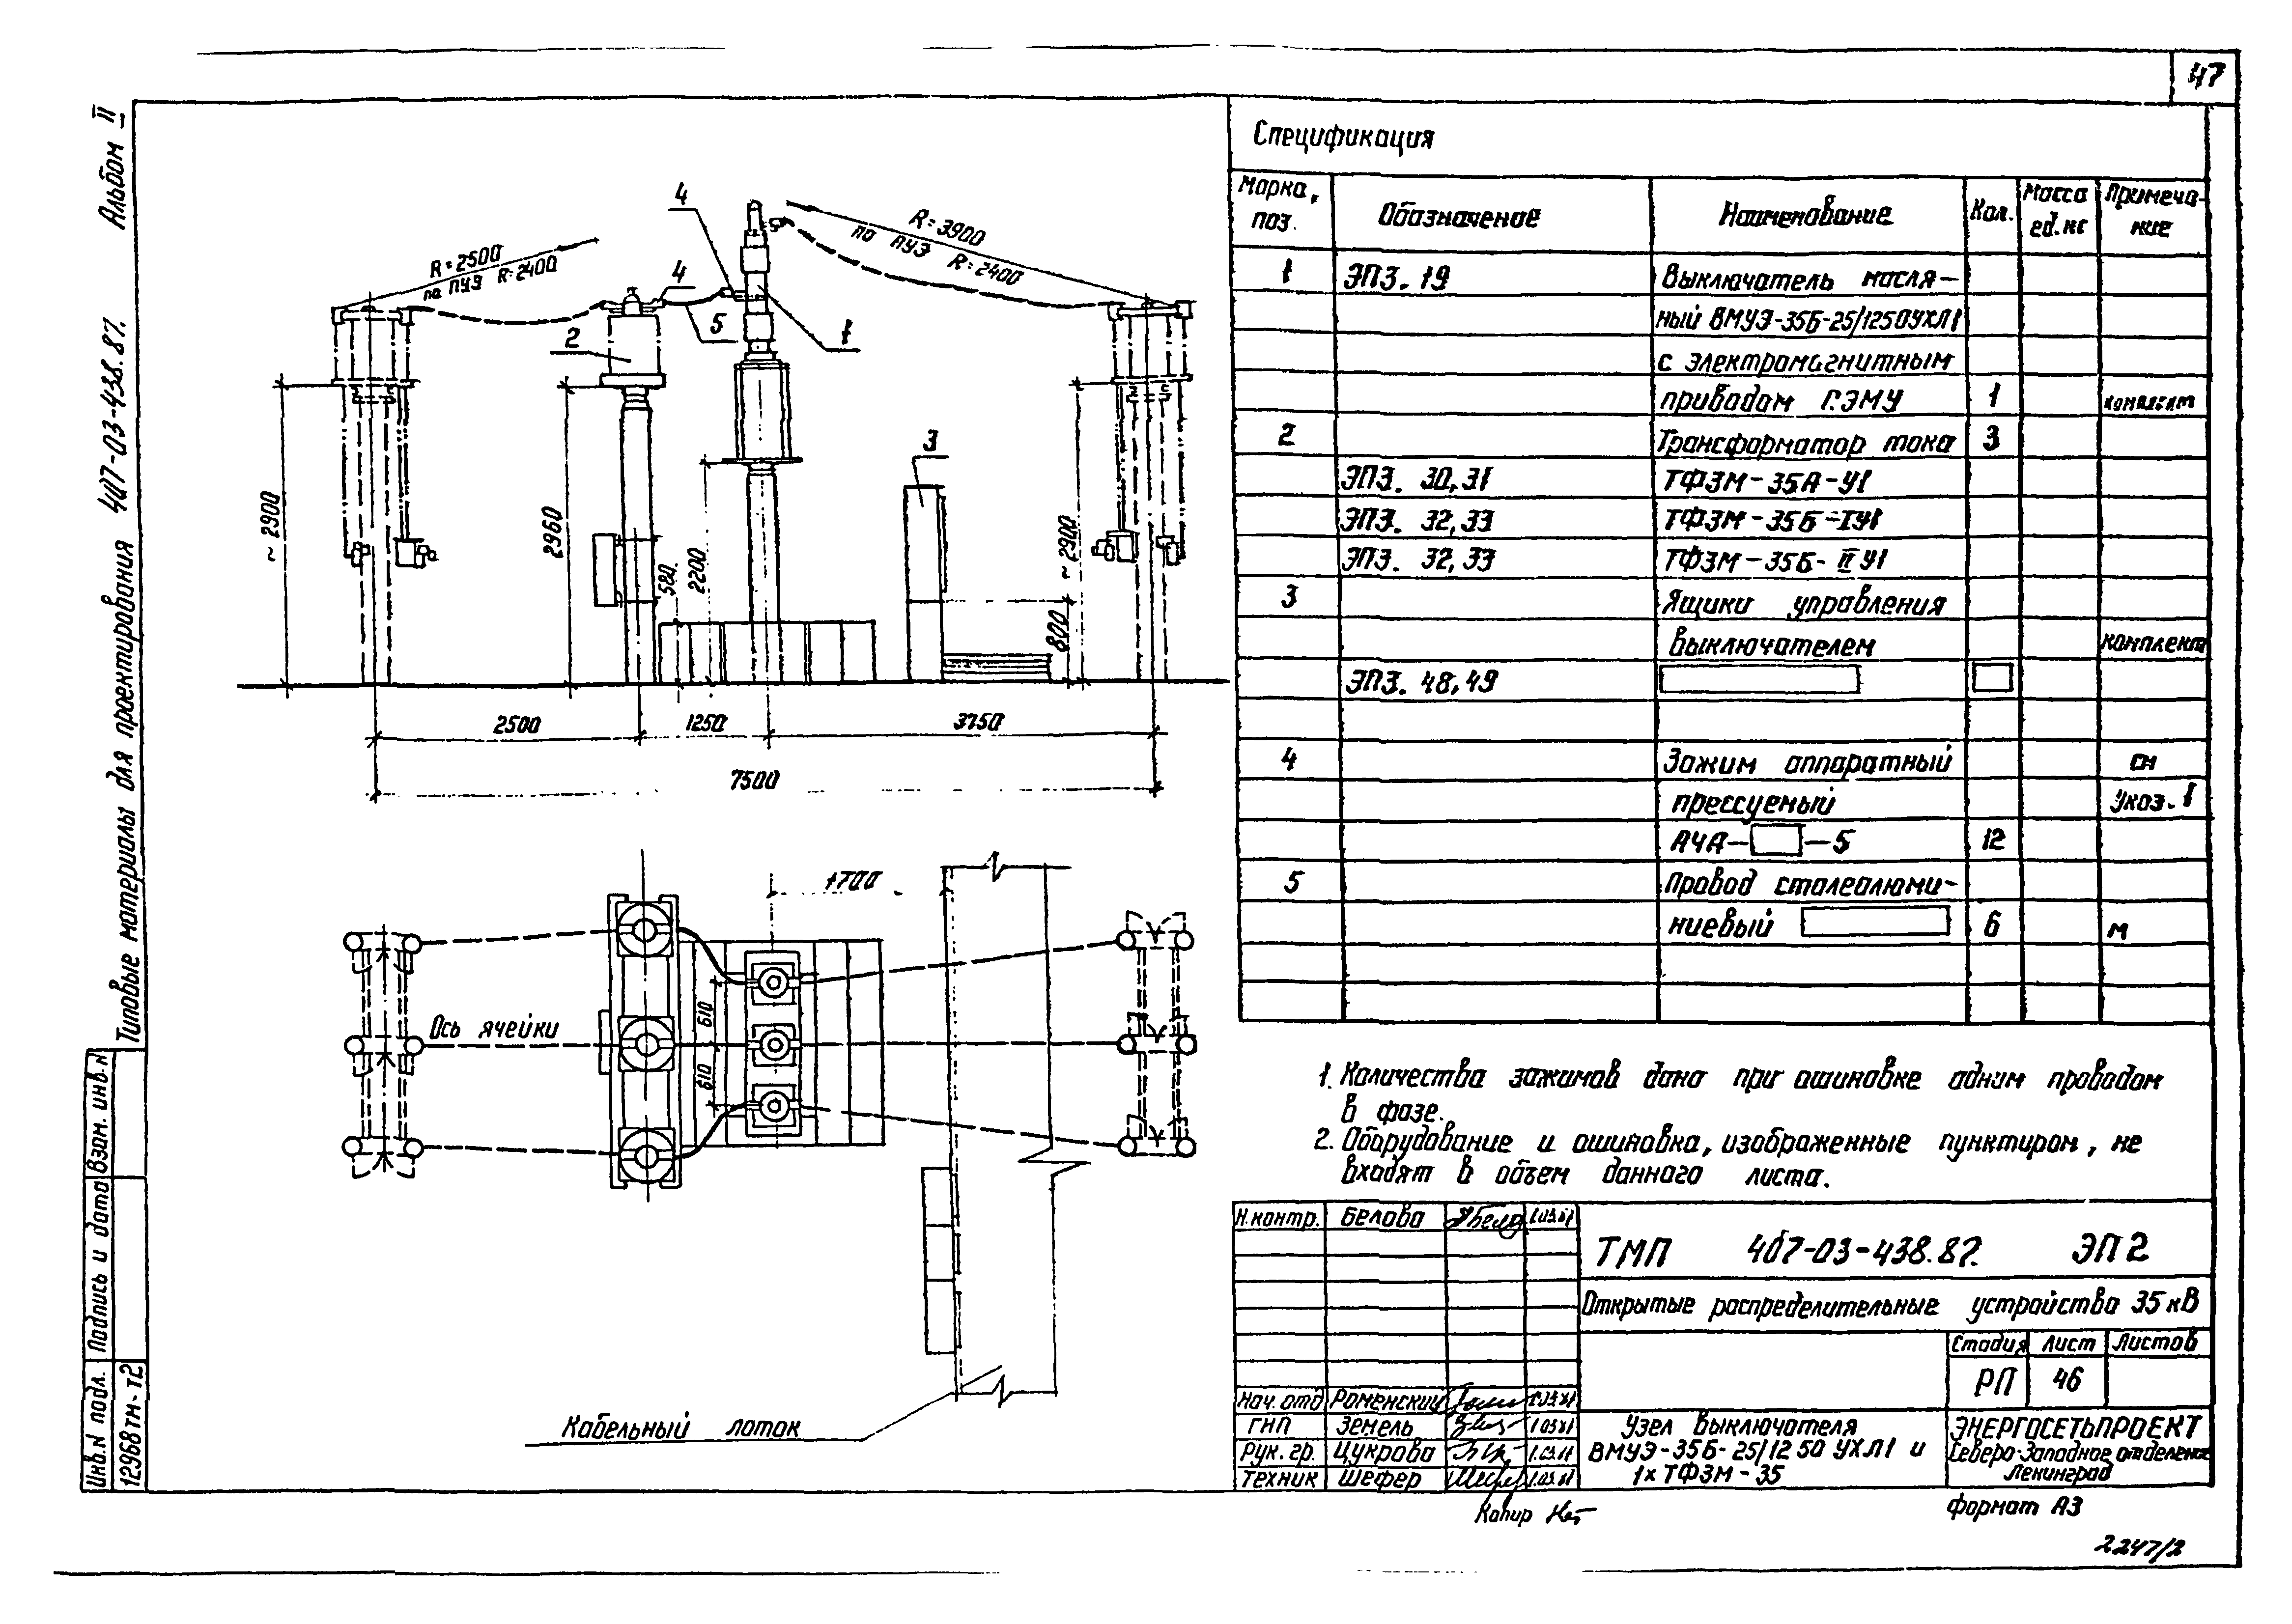 47
Альбом II
Типовые материалы для проектирования 407-03-438.87.
Взам. инв. N
Подпись и дата
Инв. N подл.
12968тм-т2
R=2500
по ПУЭ R=2400
R=3900
по ПУЭ R=2400
4
4
5
2
1
3
~2900
2960
580
2200
~2900
800
2500
1250
3750
7500
1700
610
610
Ось ячейки
Кабельный лоток
Спецификация
Марка, поз.
Обозначение
Наименование
Кол.
Масса ед. кг
Примечание
1 ЭП3. 19 Выключатель масля-
ный ВМУЭ-35Б-25/1250УХЛ1
с электромагнитным
приводом 1
2 Трансформатор тока 3
ЭП3. 30,31 ТФЗМ-35А-У1
ЭП3. 32,33 ТФЗМ-35Б-IУ1
ЭП3. 32,33 ТФЗМ-35Б-IIУ1
3 Ящики управления
выключателем комплект
ЭП3. 48,49
4 Зажим аппаратный см
прессуемый указ. 1
А4А- -5 12
5 Провод сталеалюми-
ниевый 6 м
1. Количества зажимов дано при ошиновке одним проводом
в фазе.
2. Оборудование и ошиновка, изображенные пунктиром, не
входят в объем данного листа.
Н.контр. Белова
Нач. отд Роменский
ГИП Земель
Рук. гр. Цукрова
Техник Шефер
ТМП 407-03-438.87. ЭП2
Открытые распределительные устройства 35кВ
Стадия Лист Листов
РП 46
Узел выключателя
ВМУЭ-35Б-25/1250 УХЛ1 и
1хТФЗМ-35
ЭНЕРГОСЕТЬПРОЕКТ
Северо-Западное отделение
Ленинград
Копир
формат А3
2247/2